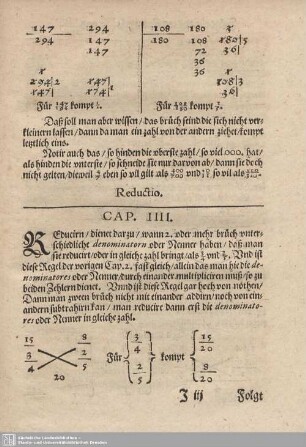 147 294 108 180
294 147 180 108
147 72 36
36
36
Daß soll man aber wissen / das brüch seind die sich nicht ver-
kleinern lassen / dann da man ein zahl von der andern ziehet / kompt
letztlich eins.
Notir auch das / so hinden die oberste zahl / so viel 000. hat /
als hinden die unterste / so schneide sie nur darvon ab / dann sie doch
nicht gelten / dieweil
Reductio.
CAP. IIII.
REducirn / dienet darzu / wann 2. oder mehr brüch unter-
schiedliche denominatorn oder Nenner haben / daß man
sie reducirt / oder in gleiche zahl bringt / als
diese Regel der vorigen Cap. 2. fast gleich / allein das man hie die de-
nominatores oder Nenner / durch einander multipliciren muß / so zu
beiden Zehlern dienet. Unnd ist diese Regel gar hoch von nöthen /
Dann man zween brüch nicht mit einander addirn / noch von ein-
andern subtrahirn kan / man reducire dann erst die denominato-
res oder Nenner in gleiche zahl.
15 8
3 2
4 5
20
Für 3/4 2/5 kompt 15/20 8/20
J iij Folgt